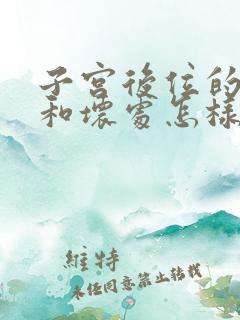 子宮後位的
和壞處怎樣
維特
未任同意禁止轉載